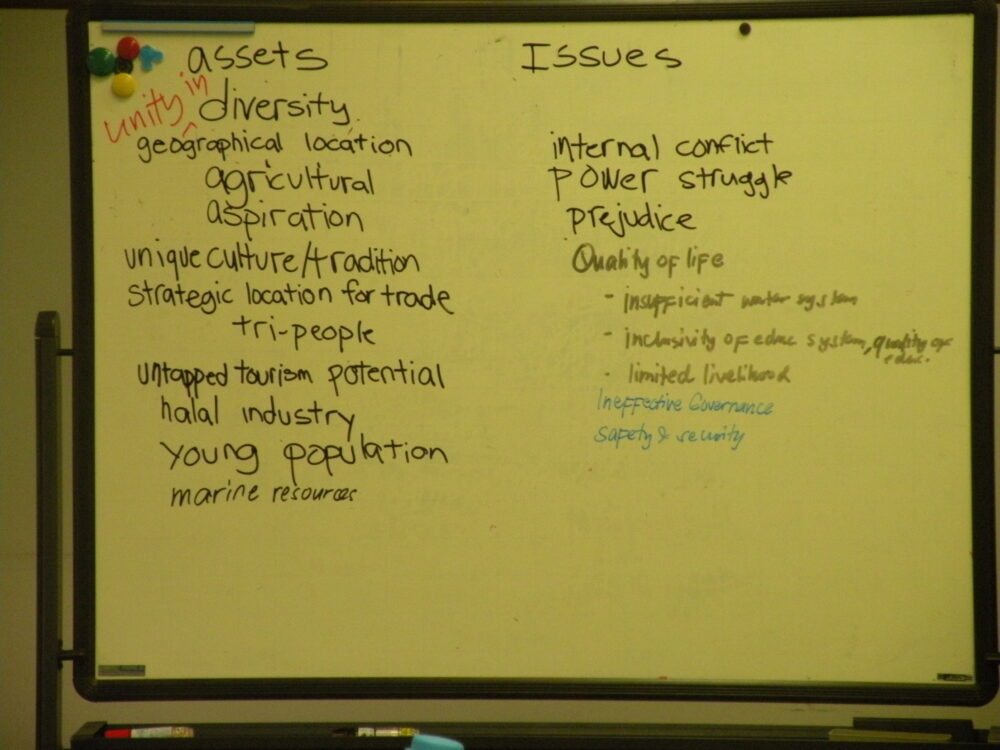 assets
unity in diversity
geographical location
agricultural
aspiration
unique culture/tradition
strategic location for trade
tri-people
untapped tourism potential
halal industry
young population
marine resources
Issues
internal conflict
power struggle
prejudice
Quality of life
- insufficient water system
- inclusivity of educ system, quality of educ.
- limited livelihood
Ineffective Governance
Safety & security